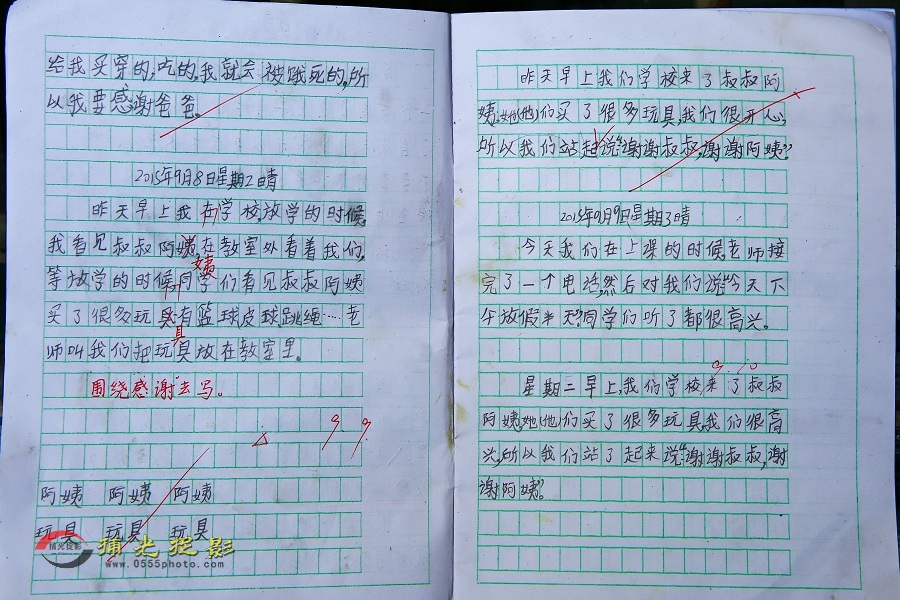 给我买穿的,吃的,我就会被饿死的,所
以我要感谢爸爸。
2015年9月8日星期2晴
昨天早上我在学校,放学的时候,
我看见叔叔阿姨,在教室外看着我们,
姨
等放学的时候同学们看见叔叔阿姨
买了很多玩具有篮球,皮球,跳绳……老
具
师叫我们把玩具放在教室里。
围绕感谢去写。
9.9.
阿姨 阿姨 阿姨
玩具 玩具 玩具
捕光捉影
捕光捉影
www.0555photo.com
昨天早上我们学校来了叔叔阿
姨,她(他)们买了很多玩具,我们很开心,
所以我们站起说“谢谢叔叔,谢谢阿姨”
2015年9月9日星期3晴
今天我们在上课的时候,老师接
完了一个电话,然后对我们说“今天下
午放假半天”同学们听了都很高兴。
9.10
星期二早上,我们学校来了叔叔
阿姨,她(他)们买了很多玩具,我们很高
兴,所以我们站了起来说“谢谢叔叔,谢
谢阿姨”。